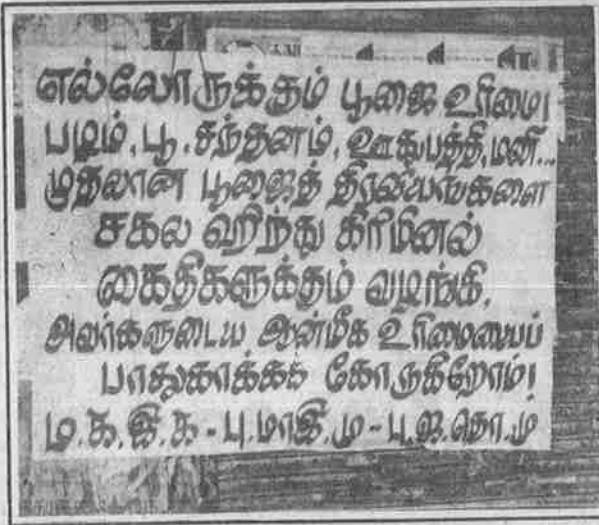 எல்லோருக்கும் பூஜை உரிமை!
படம், பூ, சந்தனம், ஊதுபத்தி, மணி...
முதலான பூஜைத் திரவியங்களை
சகல ஹிந்து கிரிமினல்
கைதிகளுக்கும் வழங்கி,
அவர்களுடைய ஆன்மீக உரிமையைப்
பாதுகாக்கக் கோருகிறோம்!
ம.க.இ.க - பு.மாஇ.மு - பு.ஜ.தொ.மு